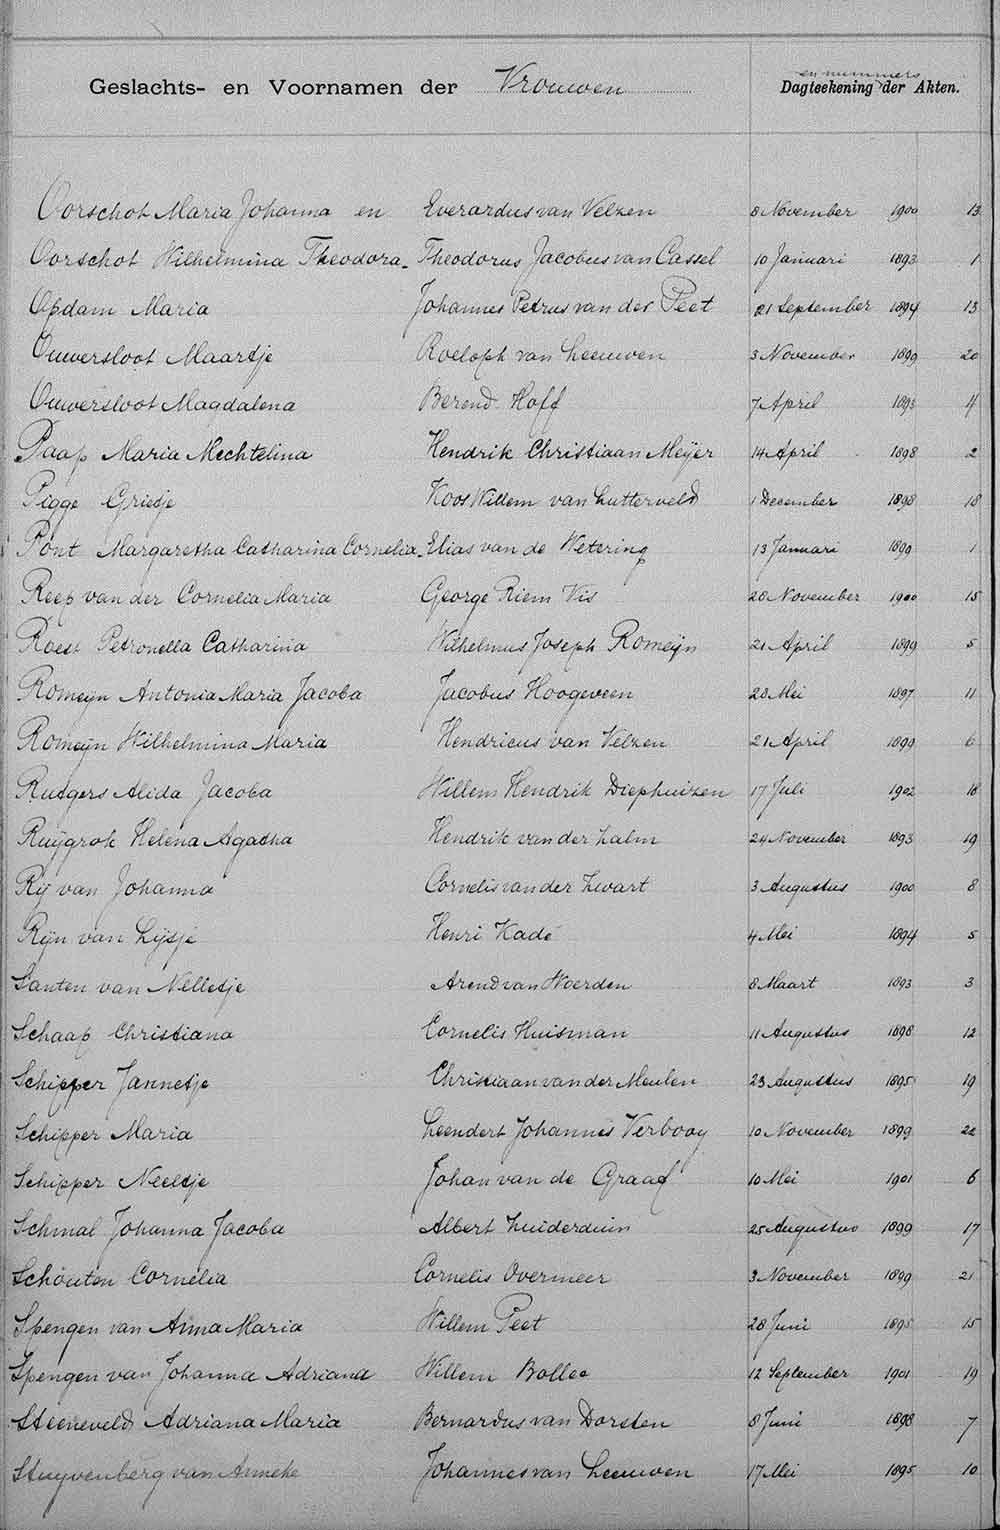 Geslachts- en Voornamen der Vrouwen
en nummers
Dagteekening der Akten.
Oorschot Maria Johanna en Everardus van Velzen 8 November 1900 13
Oorschot Wilhelmina Theodora Theodorus Jacobus van Cassel 10 Januari 1893 1
Opdam Maria Johannes Petrus van der Peet 21 September 1894 13
Ouwersloot Maartje Roeloph van Leeuwen 3 November 1899 20
Ouwersloot Magdalena Berend Hoff 7 April 1893 4
Paap Maria Mechtelina Hendrik Christiaan Meijer 14 April 1898 2
Pigge Grietje Koos Willem van Lutterveld 1 December 1898 18
Pont Margaretha Catharina Cornelia Elias van de Wetering 13 Januari 1899 1
Reep van der Cornelia Maria George Riem Vis 28 November 1900 15
Roest Petronella Catharina Wilhelmus Joseph Romeijn 21 April 1899 5
Romeyn Antonia Maria Jacoba Jacobus Hoogeveen 28 Mei 1897 11
Romeijn Wilhelmina Maria Hendricus van Velzen 21 April 1899 6
Rutgers Alida Jacoba Willem Hendrik Diephuizen 17 Juli 1902 18
Ruijgrok Helena Agatha Hendrik van der Zalm 24 November 1893 19
Rij van Johanna Cornelis van der Zwart 3 Augustus 1900 8
Rijn van Lijsje Henri Kadé 4 Mei 1894 5
Santen van Nelletje Arend van Woerden 8 Maart 1893 3
Schaap Christiana Cornelis Huisman 11 Augustus 1898 12
Schipper Jannetje Christiaan van der Meulen 23 Augustus 1895 19
Schipper Maria Leendert Johannes Verbooy 10 November 1899 22
Schipper Neeltje Johan van de Graaf 10 Mei 1901 6
Schmal Johanna Jacoba Albert Zuiderduin 25 Augustus 1899 17
Schouten Cornelia Cornelis Overmeer 3 November 1899 21
Spengen van Anna Maria Willem Peet 28 Juni 1895 15
Spengen van Johanna Adriana Willem Bollee 12 September 1901 19
Steeneveld Adriana Maria Bernardus van Dorsten 8 Juni 1898 7
Stuyvenberg van Anneke Johannes van Leeuwen 17 Mei 1895 10